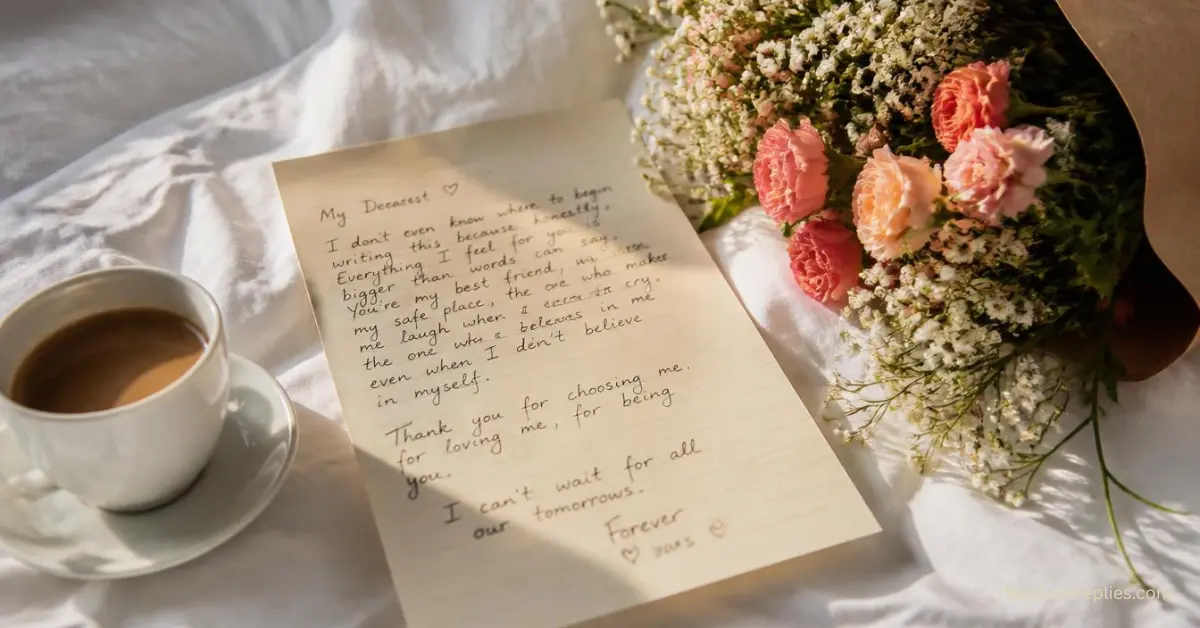 My Deearest ♡
I don't even know where to begin
writing this because honestly,
Everything I feel for you is
bigger than words can say.
You're my best friend,
my safe place, the one who makes
me laugh when I cry.
the one who beleves in me
even when I dén't believe
in myself.
Thank you for choosing me.
for loving me, for being
you.
I can't wait for all
our tomorrows.
Forever
♡ ♡
eplies.com